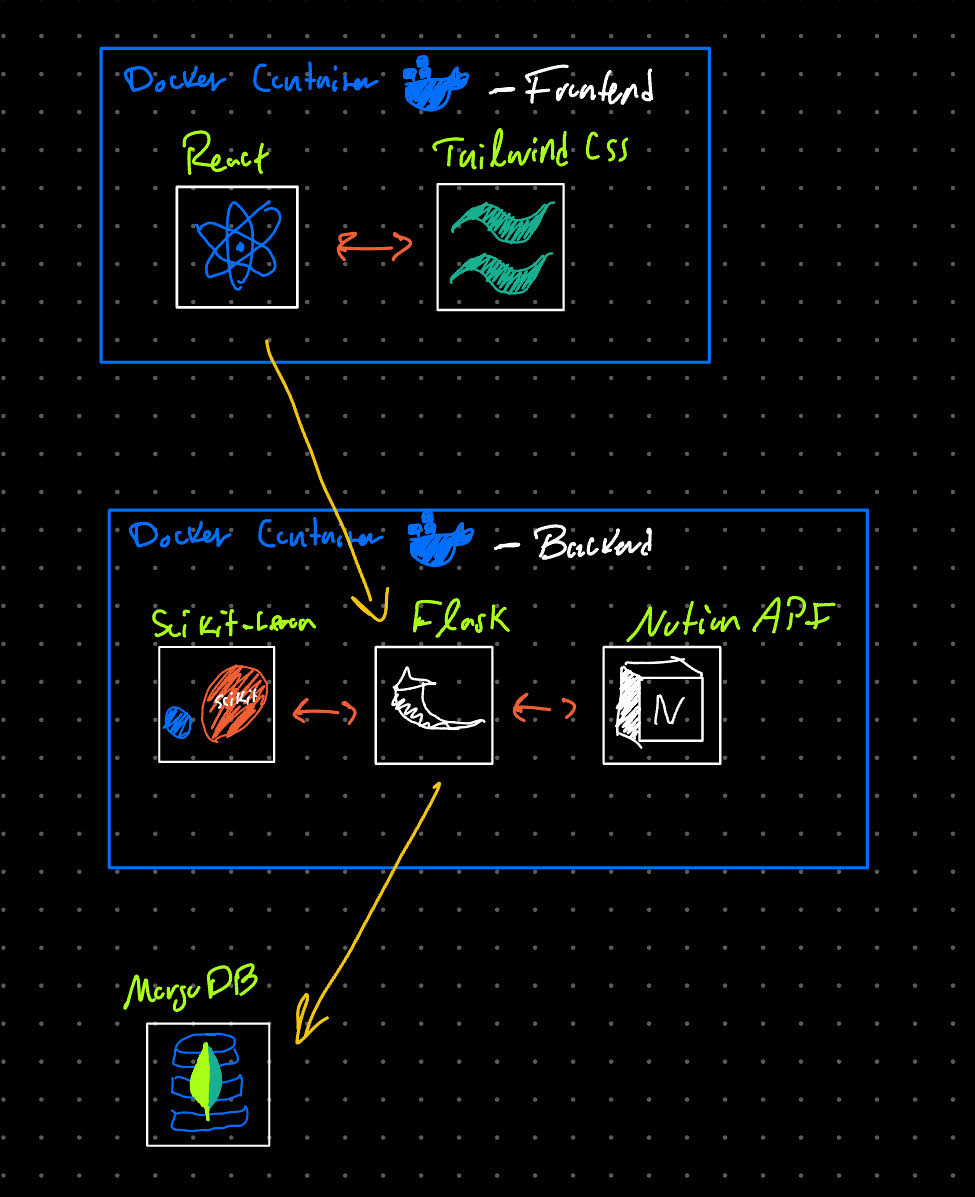 Docker Container - Frontend
React
Tailwind Css
Docker Container - Backend
Scikit-Learn
Flask
Notion API
scikit
N
MongoDB